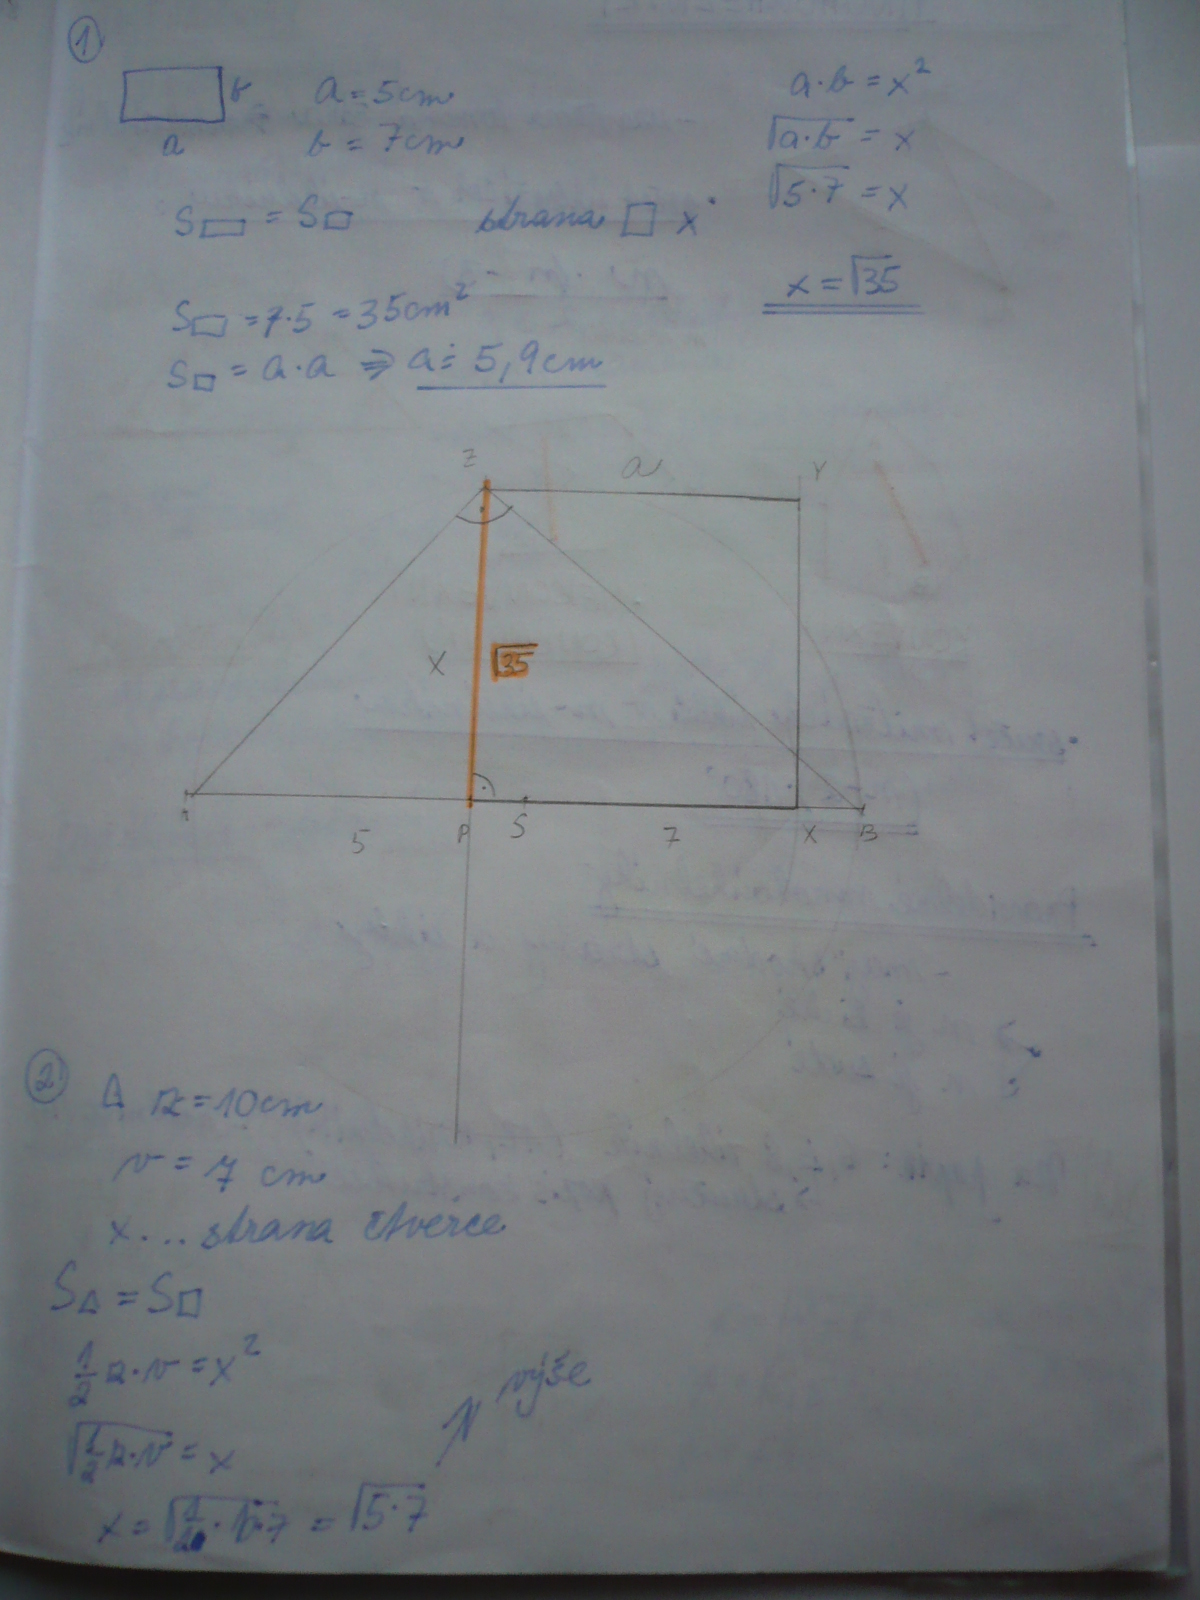 1
b a = 5cm a·b = x²
a b = 7cm √a·b = x
√5·7 = x
S▭ = S□ strana □ x
x = √35
S▭ = 7·5 = 35cm²
S□ = a·a ⇒ a ≐ 5,9cm
Z a Y
X √35
5 P S 7 X B
2
△ z = 10cm
v = 7 cm
x... strana čtverce
S△ = S□
½ z·v = x²
výše
√½ z·v = x
x = √½·10·7 = √5·7